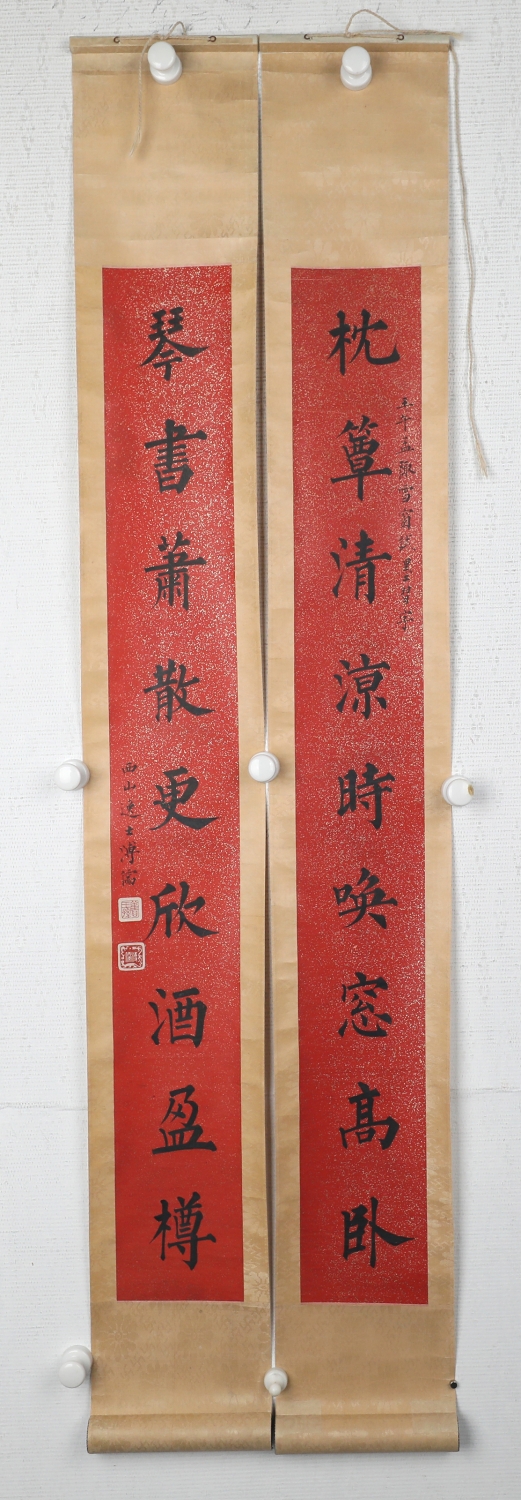 枕簟清涼時喚窓髙卧
壬午孟陬
琴書蕭散更欣酒盈樽
西山逸士溥儒